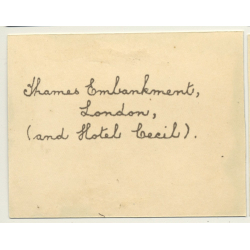 Thames Embankment,
London,
(and Hotel Cecil).